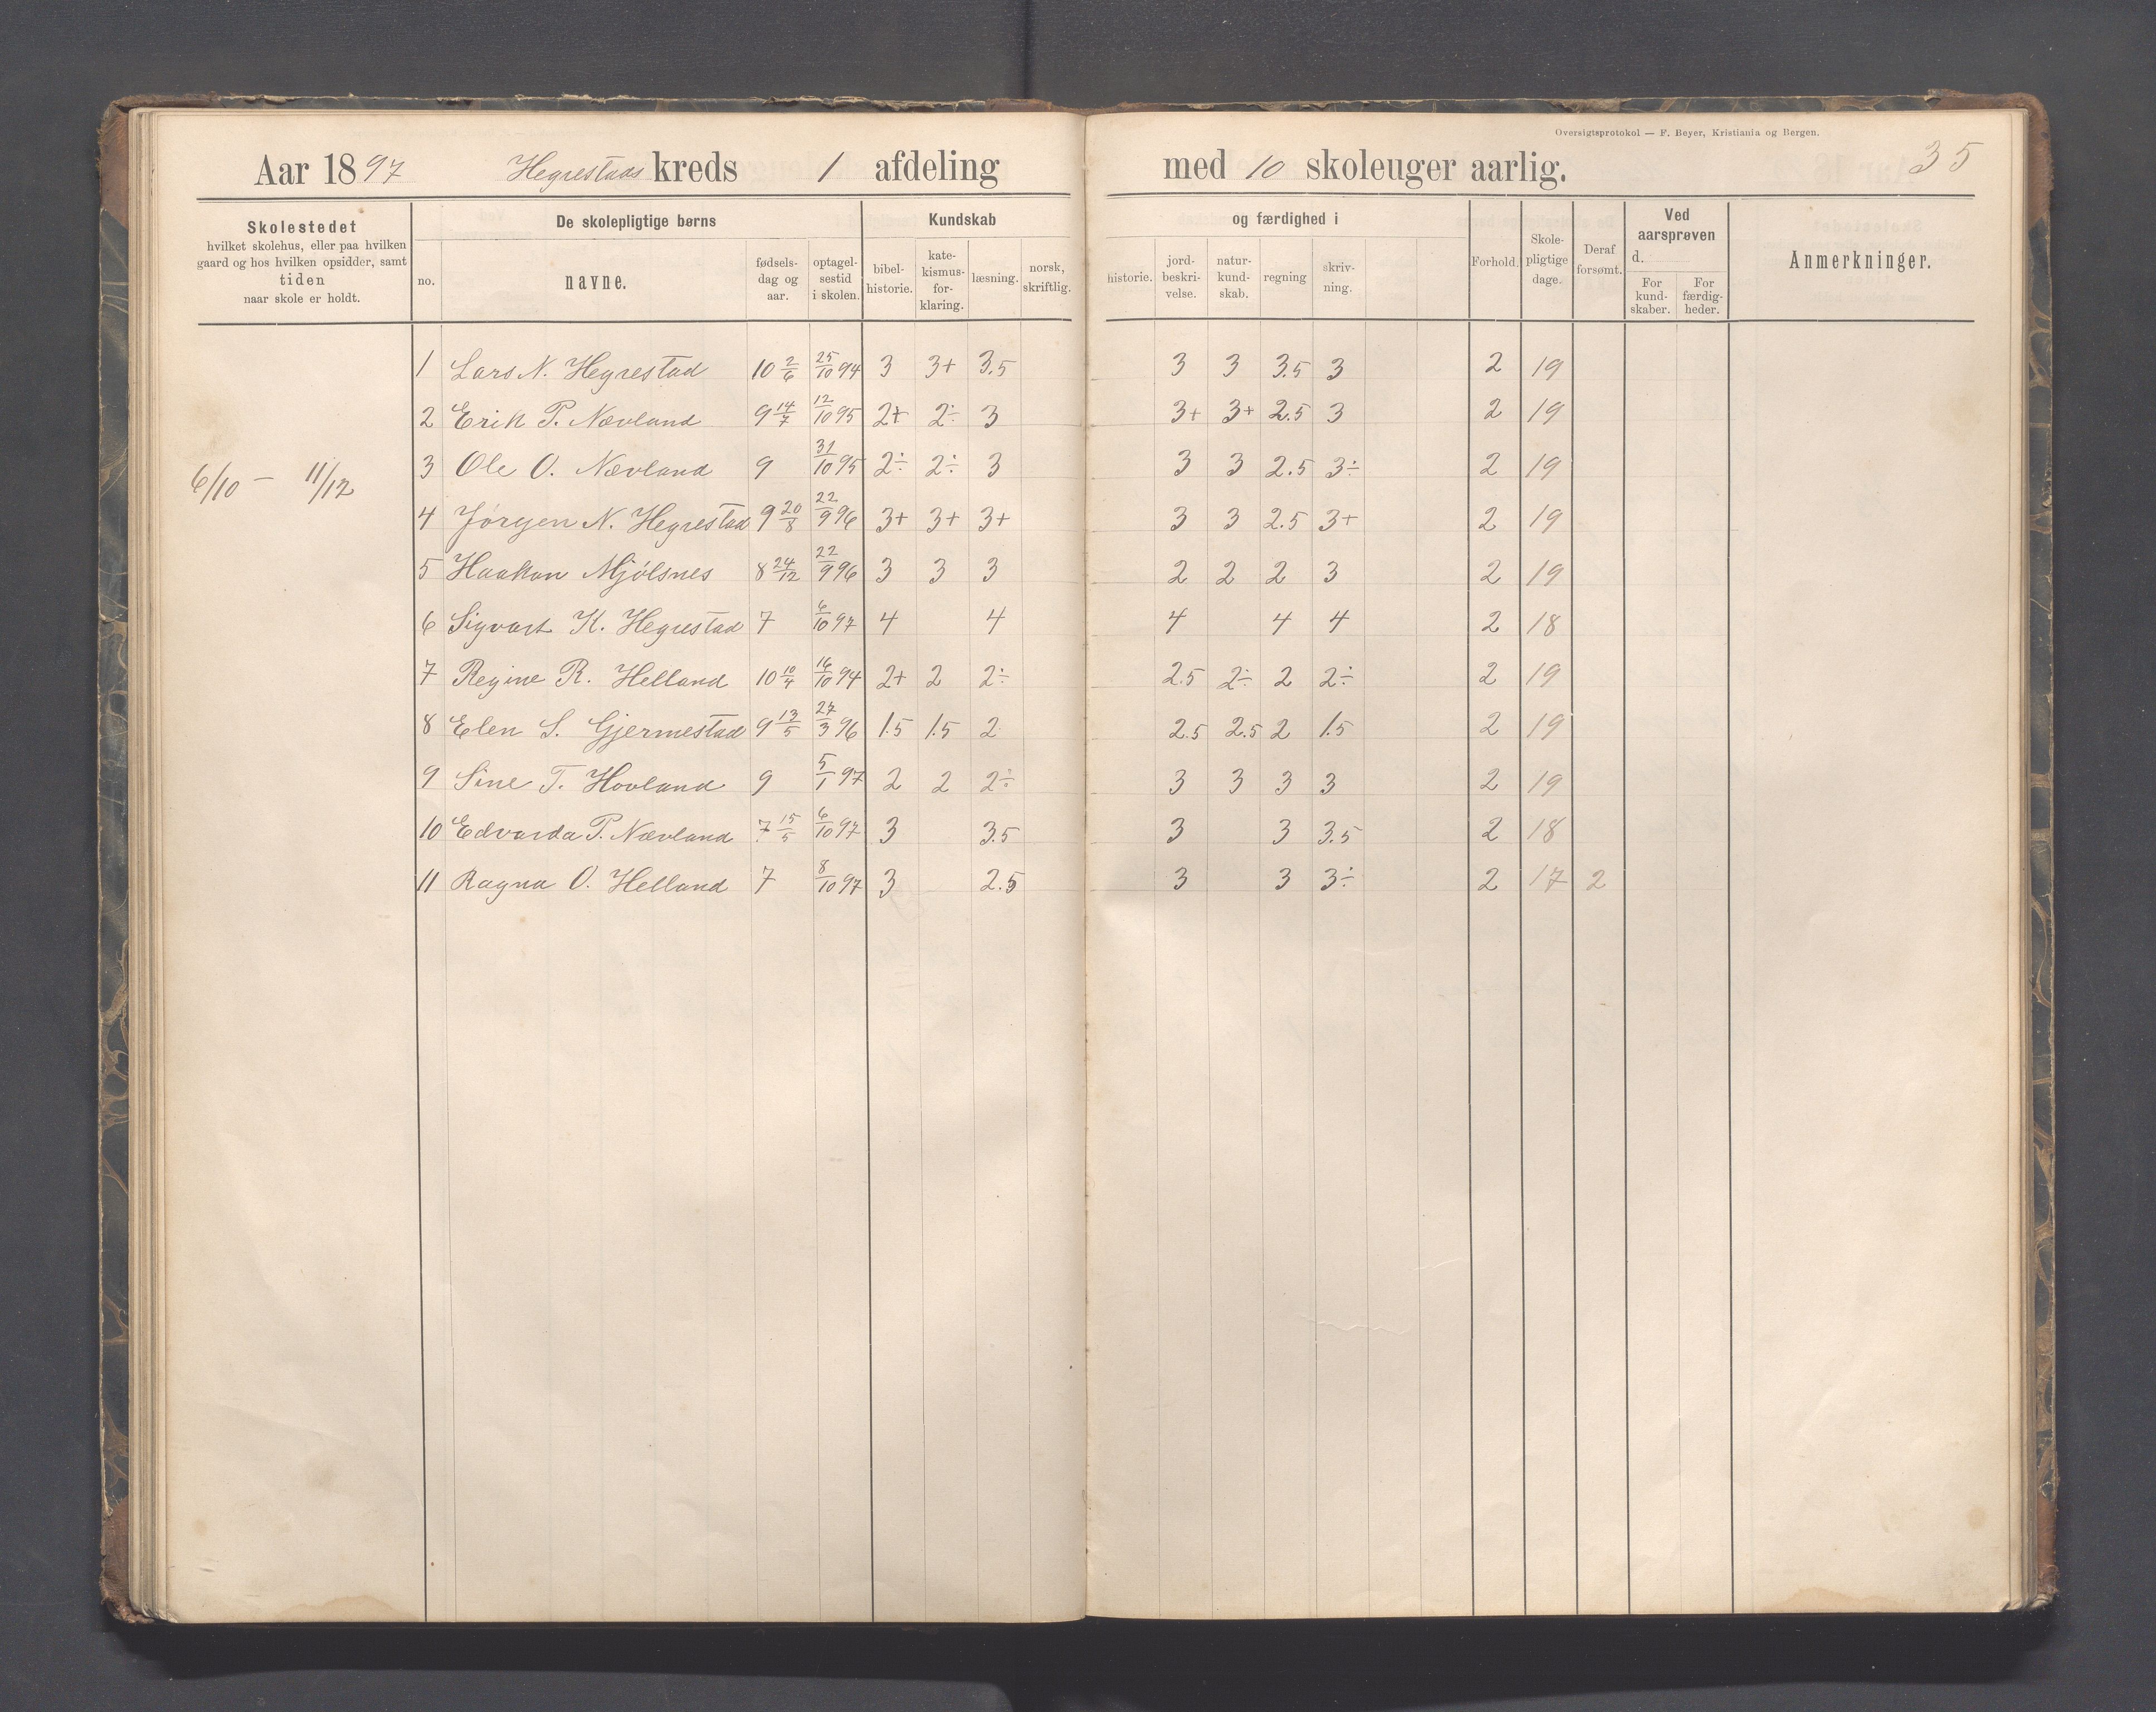 Oversigtsprotokol — F. Beyer, Kristiania og Bergen.
Aar 1897 Hegrestads kreds 1 afdeling med 10 skoleuger aarlig. 35
Skolestedet
hvilket skolehus, eller paa hvilken
gaard og hos hvilken opsidder, samt
tiden
naar skole er holdt.
De skolepligtige børns
no.
navne.
fødsels-
dag og
aar.
optagel-
sestid
i skolen.
Kundskab
bibel-
historie.
kate-
kismus-
for-
klaring.
læsning.
norsk,
skriftlig.
og færdighed i
historie.
jord-
beskri-
velse.
natur-
kund-
skab.
regning
skriv-
ning.
Forhold.
Skole-
pligtige
dage.
Deraf
forsømt.
Ved
aarsprøven
d.
For
kund-
skaber.
For
færdig-
heder.
Anmerkninger.
6/10 – 11/12
1 Lars N. Hegrestad 10 2/6 25/10 94 3 3+ 3.5 3 3 3.5 3 2 19
2 Erik P. Nævland 9 14/7 12/10 95 2+ 2÷ 3 3+ 3+ 2.5 3 2 19
3 Ole O. Nævland 9 31/10 95 2÷ 2÷ 3 3 3 2.5 3÷ 2 19
4 Jørgen N. Hegrestad 9 20/8 22/9 96 3+ 3+ 3+ 3 3 2.5 3+ 2 19
5 Haakon Mjølsnes 8 24/12 22/9 96 3 3 3 2 2 2 3 2 19
6 Sigvart K. Hegrestad 7 6/10 97 4 4 4 4 4 2 18
7 Regine R. Helland 10 10/4 16/10 94 2+ 2 2÷ 2.5 2÷ 2 2÷ 2 19
8 Elen S. Gjermestad 9 13/5 27/3 96 1.5 1.5 2 2.5 2.5 2 1.5 2 19
9 Sine T. Hovland 9 5/1 97 2 2 2÷ 3 3 3 3 2 19
10 Edvarda P. Nævland 7 15/5 6/10 97 3 3.5 3 3 3.5 2 18
11 Ragna O. Helland 7 8/10 97 3 2.5 3 3 3÷ 2 17 2